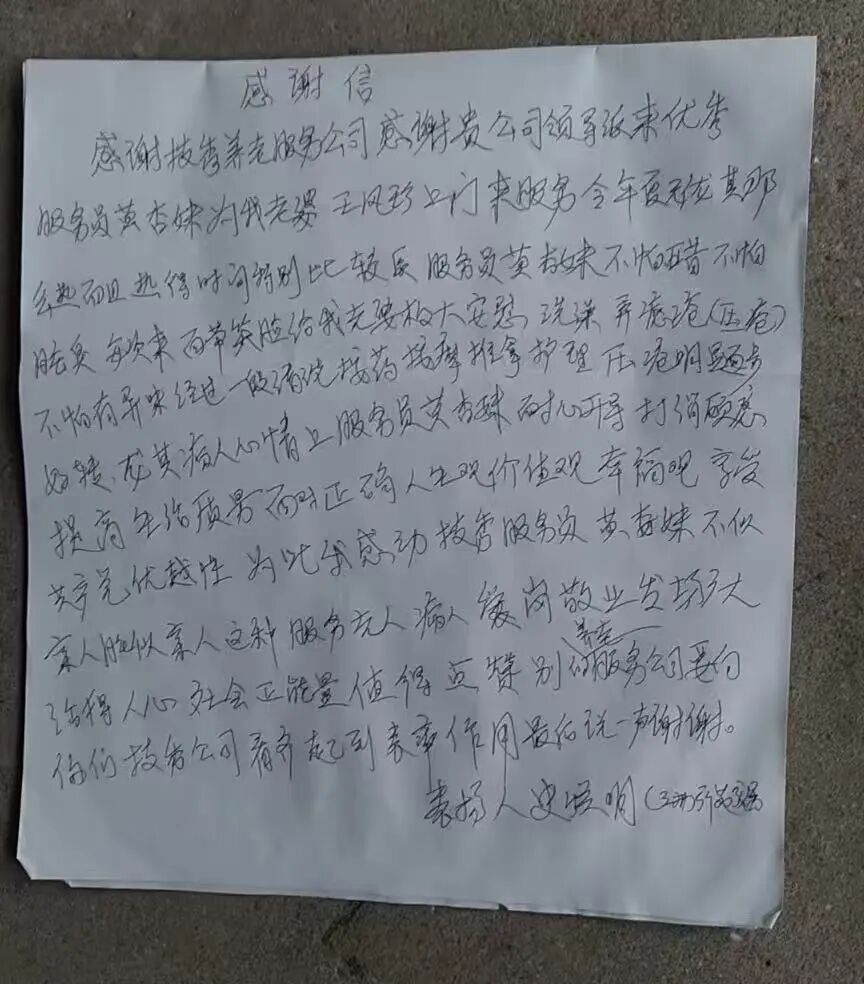 感谢信
感谢技秀养老服务公司感谢贵公司领导派来优秀
服务员黄杏妹为我老婆王凤珍上门来服务今年夏天尤其那
么热而且热得时间特别比较长服务员黄杏妹不怕脏不怕
脏臭每次来面带笑脸给我老婆极大安慰洗澡弄 疮(压疮)
不怕有异味经过一段清洗换药按摩推拿护理压疮明显
好转、尤其病人心情上服务员黄杏妹耐心开导打消顾虑
提高生活质量面对正确人生观价值观幸福观享受
共产党优越性为此我感动技秀服务员黄杏妹不似
亲人胜似亲人这种服务老人病人爱岗敬业发扬大
得人心社会正能量值得点赞别的养老服务公司要向
你们技秀公司看齐起到表率作用最后说一声谢谢。
表扬人史 明